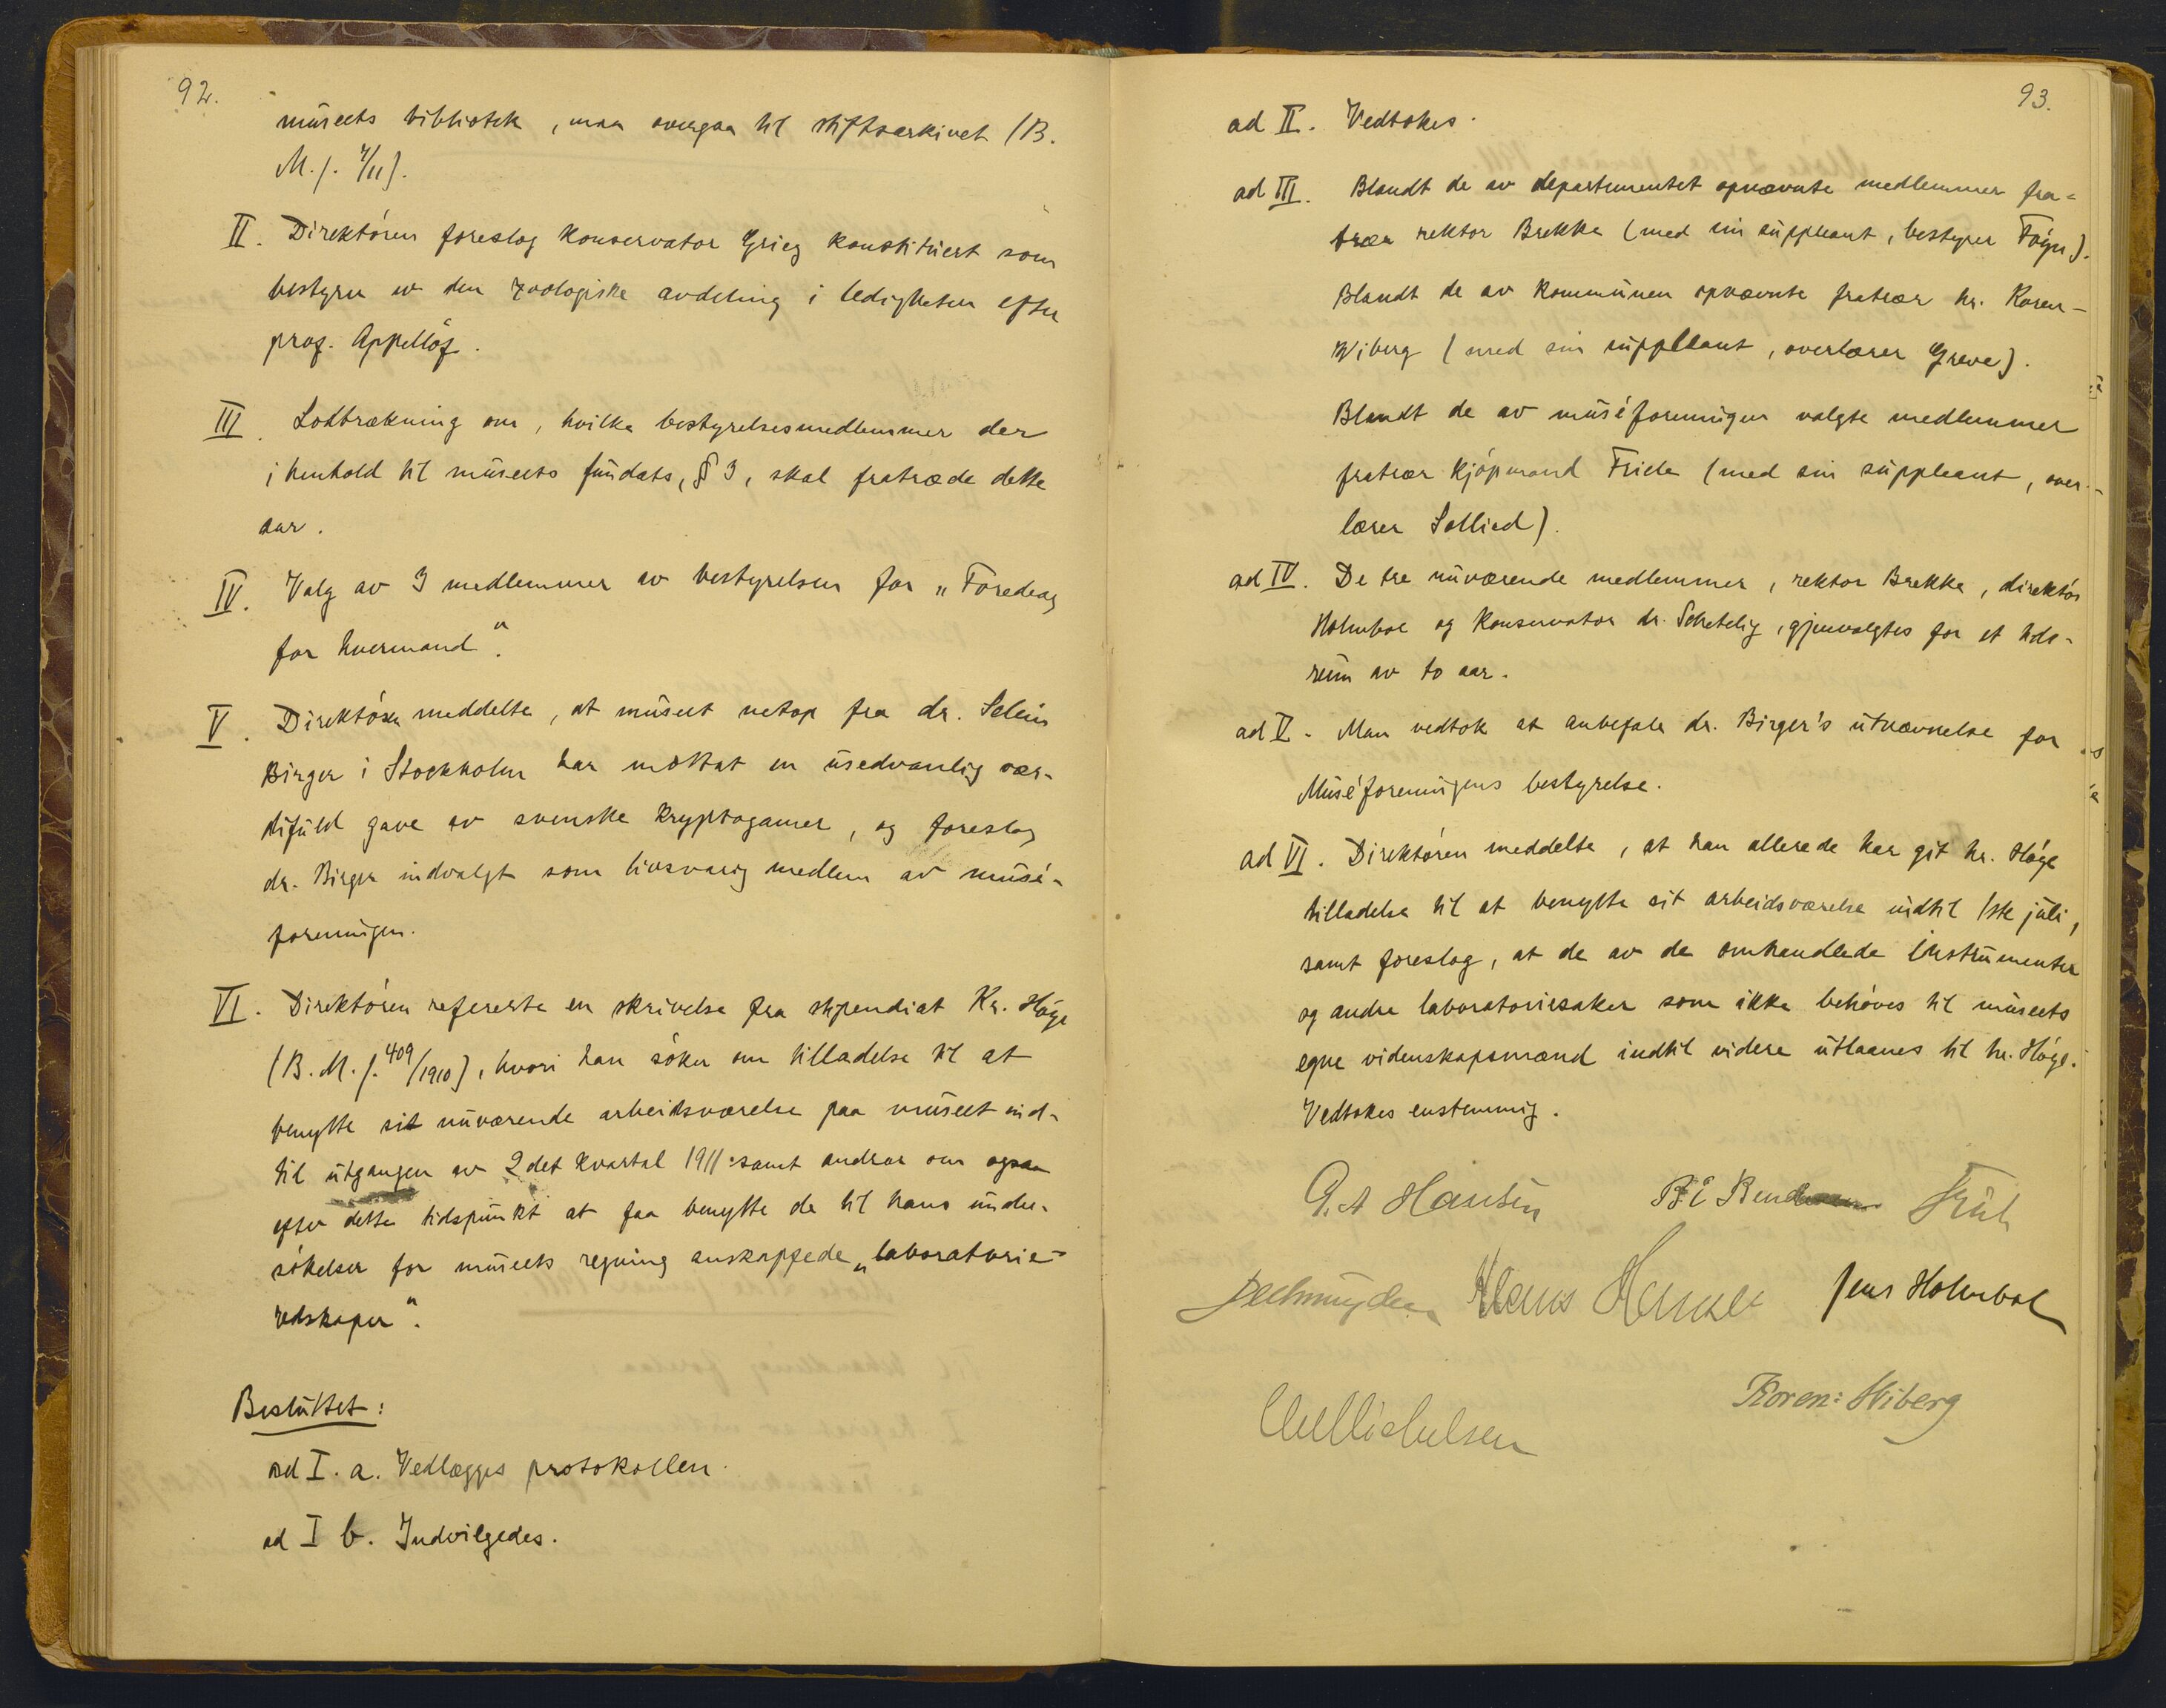 92.
muséets bibliotek, maa overgaa til stiftsarkivet (B.
M. j. 7/11).
II. Direktören foreslog konservator Grieg konstituert som
bestyrer av den zoologiske avdeling i ledigheten efter
prof. Appellöf.
III. Lodtrækning om, hvilke bestyrelsesmedlemmer der
i henhold til muséets fundats, § 3, skal fratræde dette
aar.
IV. Valg av 3 medlemmer av bestyrelsen for „Foredrag
for hvermand".
V. Direktören meddelte, at muséet netop fra dr. Selim
Birger i Stockholm har mottat en usedvanlig vær-
difuld gave av svenske kryptogamer, og foreslog
dr. Birger indvalgt som livsvarig medlem av musé-
foreningen.
VI. Direktören refererte en skrivelse fra stipendiat Kr. Höge
(B. M. j. 409/1910), hvori han söker om tilladelse til at
benytte sit nuværende arbeidsværelse paa muséet ind-
til utgangen av 2det kvartal 1911 samt andrar om ogsaa
efter dette tidspunkt at faa benytte de til hans under-
sökelser for muséets regning anskaffede „laboratorie-
redskaper".
Besluttet:
ad I. a. Vedlægges protokollen.
ad I b. Indvilgedes.
93.
ad II. Vedtokes.
ad III. Blandt de av departementet opnævnte medlemmer fra-
træer rektor Brekke (med sin suppleant, bestyrer Fögn).
Blandt de av kommunen opnævnte fratræer hr. Koren-
Wiberg (med sin suppleant, overlærer Greve).
Blandt de av muséforeningen valgte medlemmer
fratræer kjöpmand Friele (med sin suppleant, over-
lærer Sollied).
ad IV. De tre nuværende medlemmer, rektor Brekke, direktör
Holmboe og konservator dr. Schetelig, gjenvalgtes for et tids-
rum av to aar.
ad V. Man vedtok at anbefale dr. Birger's utnævnelse for
Muséforeningens bestyrelse.
ad VI. Direktören meddelte, at han allerede har git hr. Höge
tilladelse til at benytte sit arbeidsværelse indtil 1ste juli,
samt foreslog, at de av de omhandlede instrumenter
og andre laboratoriesaker som ikke behöves til muséets
egne videnskapsmænd indtil videre utlaanes til hr. Höge.
Vedtokes enstemmig.
G. A Hansen B E Bendixen
Hans Jens Holmboe
Koren-Wiberg
Chr Michelsen